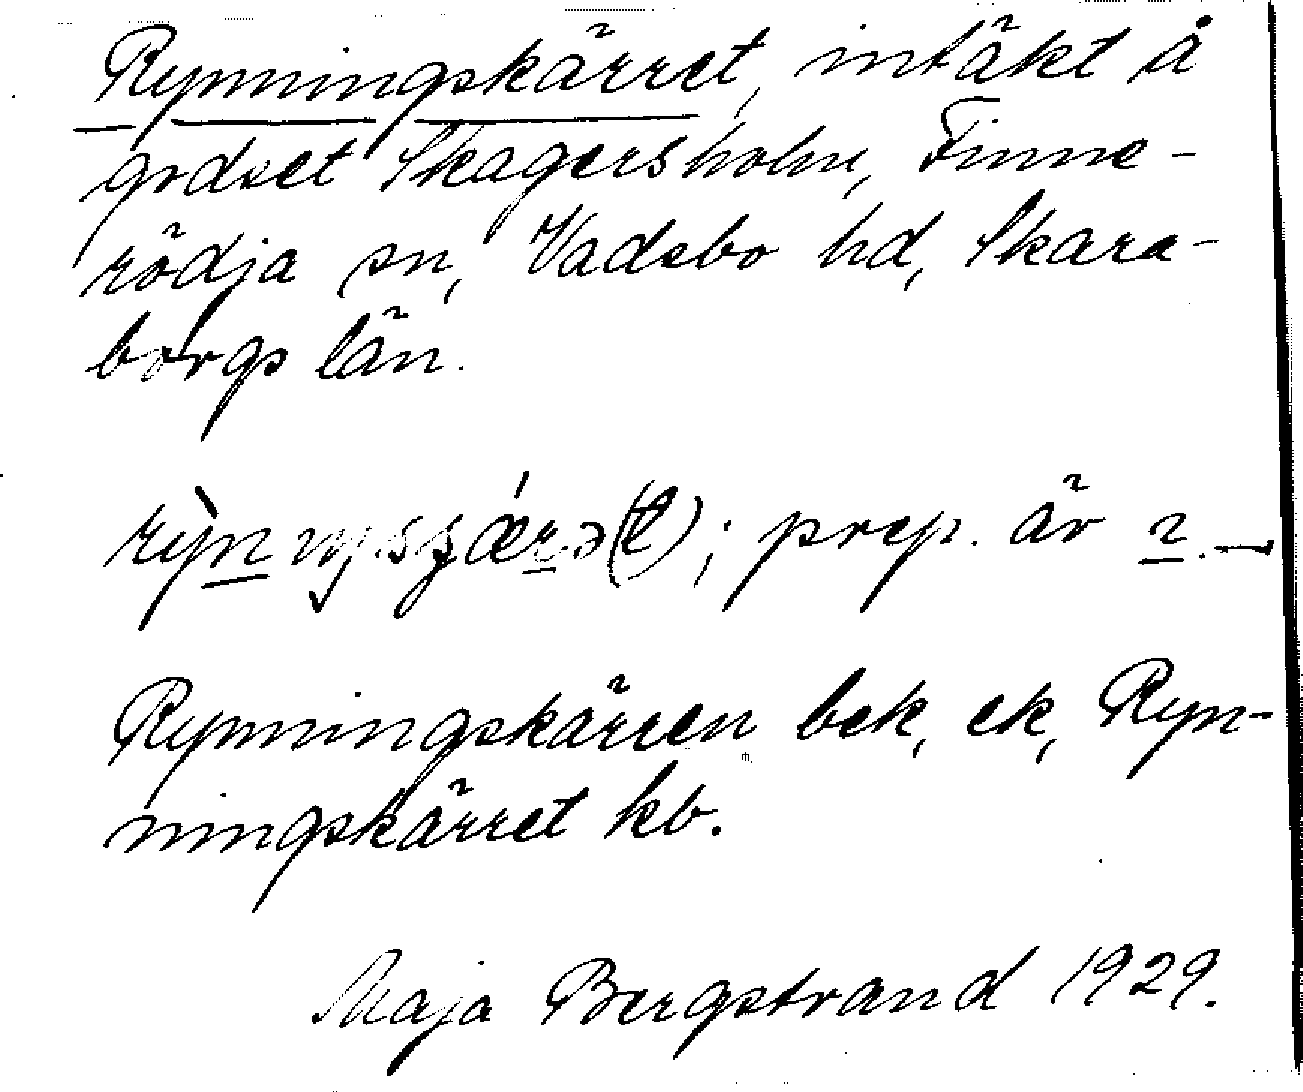 Rynningskärret, intäkt å
godset Skagersholm, Finne-
rödja sn, Vadsbo hd, Skara-
borgs län.
prep. är
Rynningskärren bek, ek, Ryn-
ningskärret kb.
Maja Bergstrand 1929.